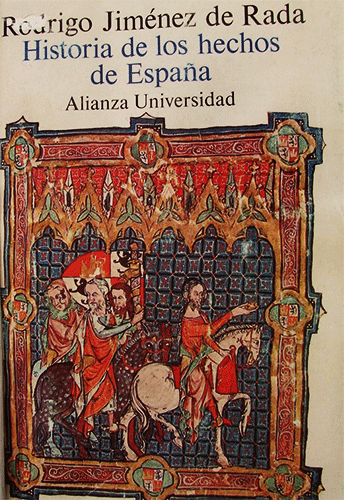 Rodrigo Jiménez de Rada
Historia de los hechos
de España
Alianza Universidad